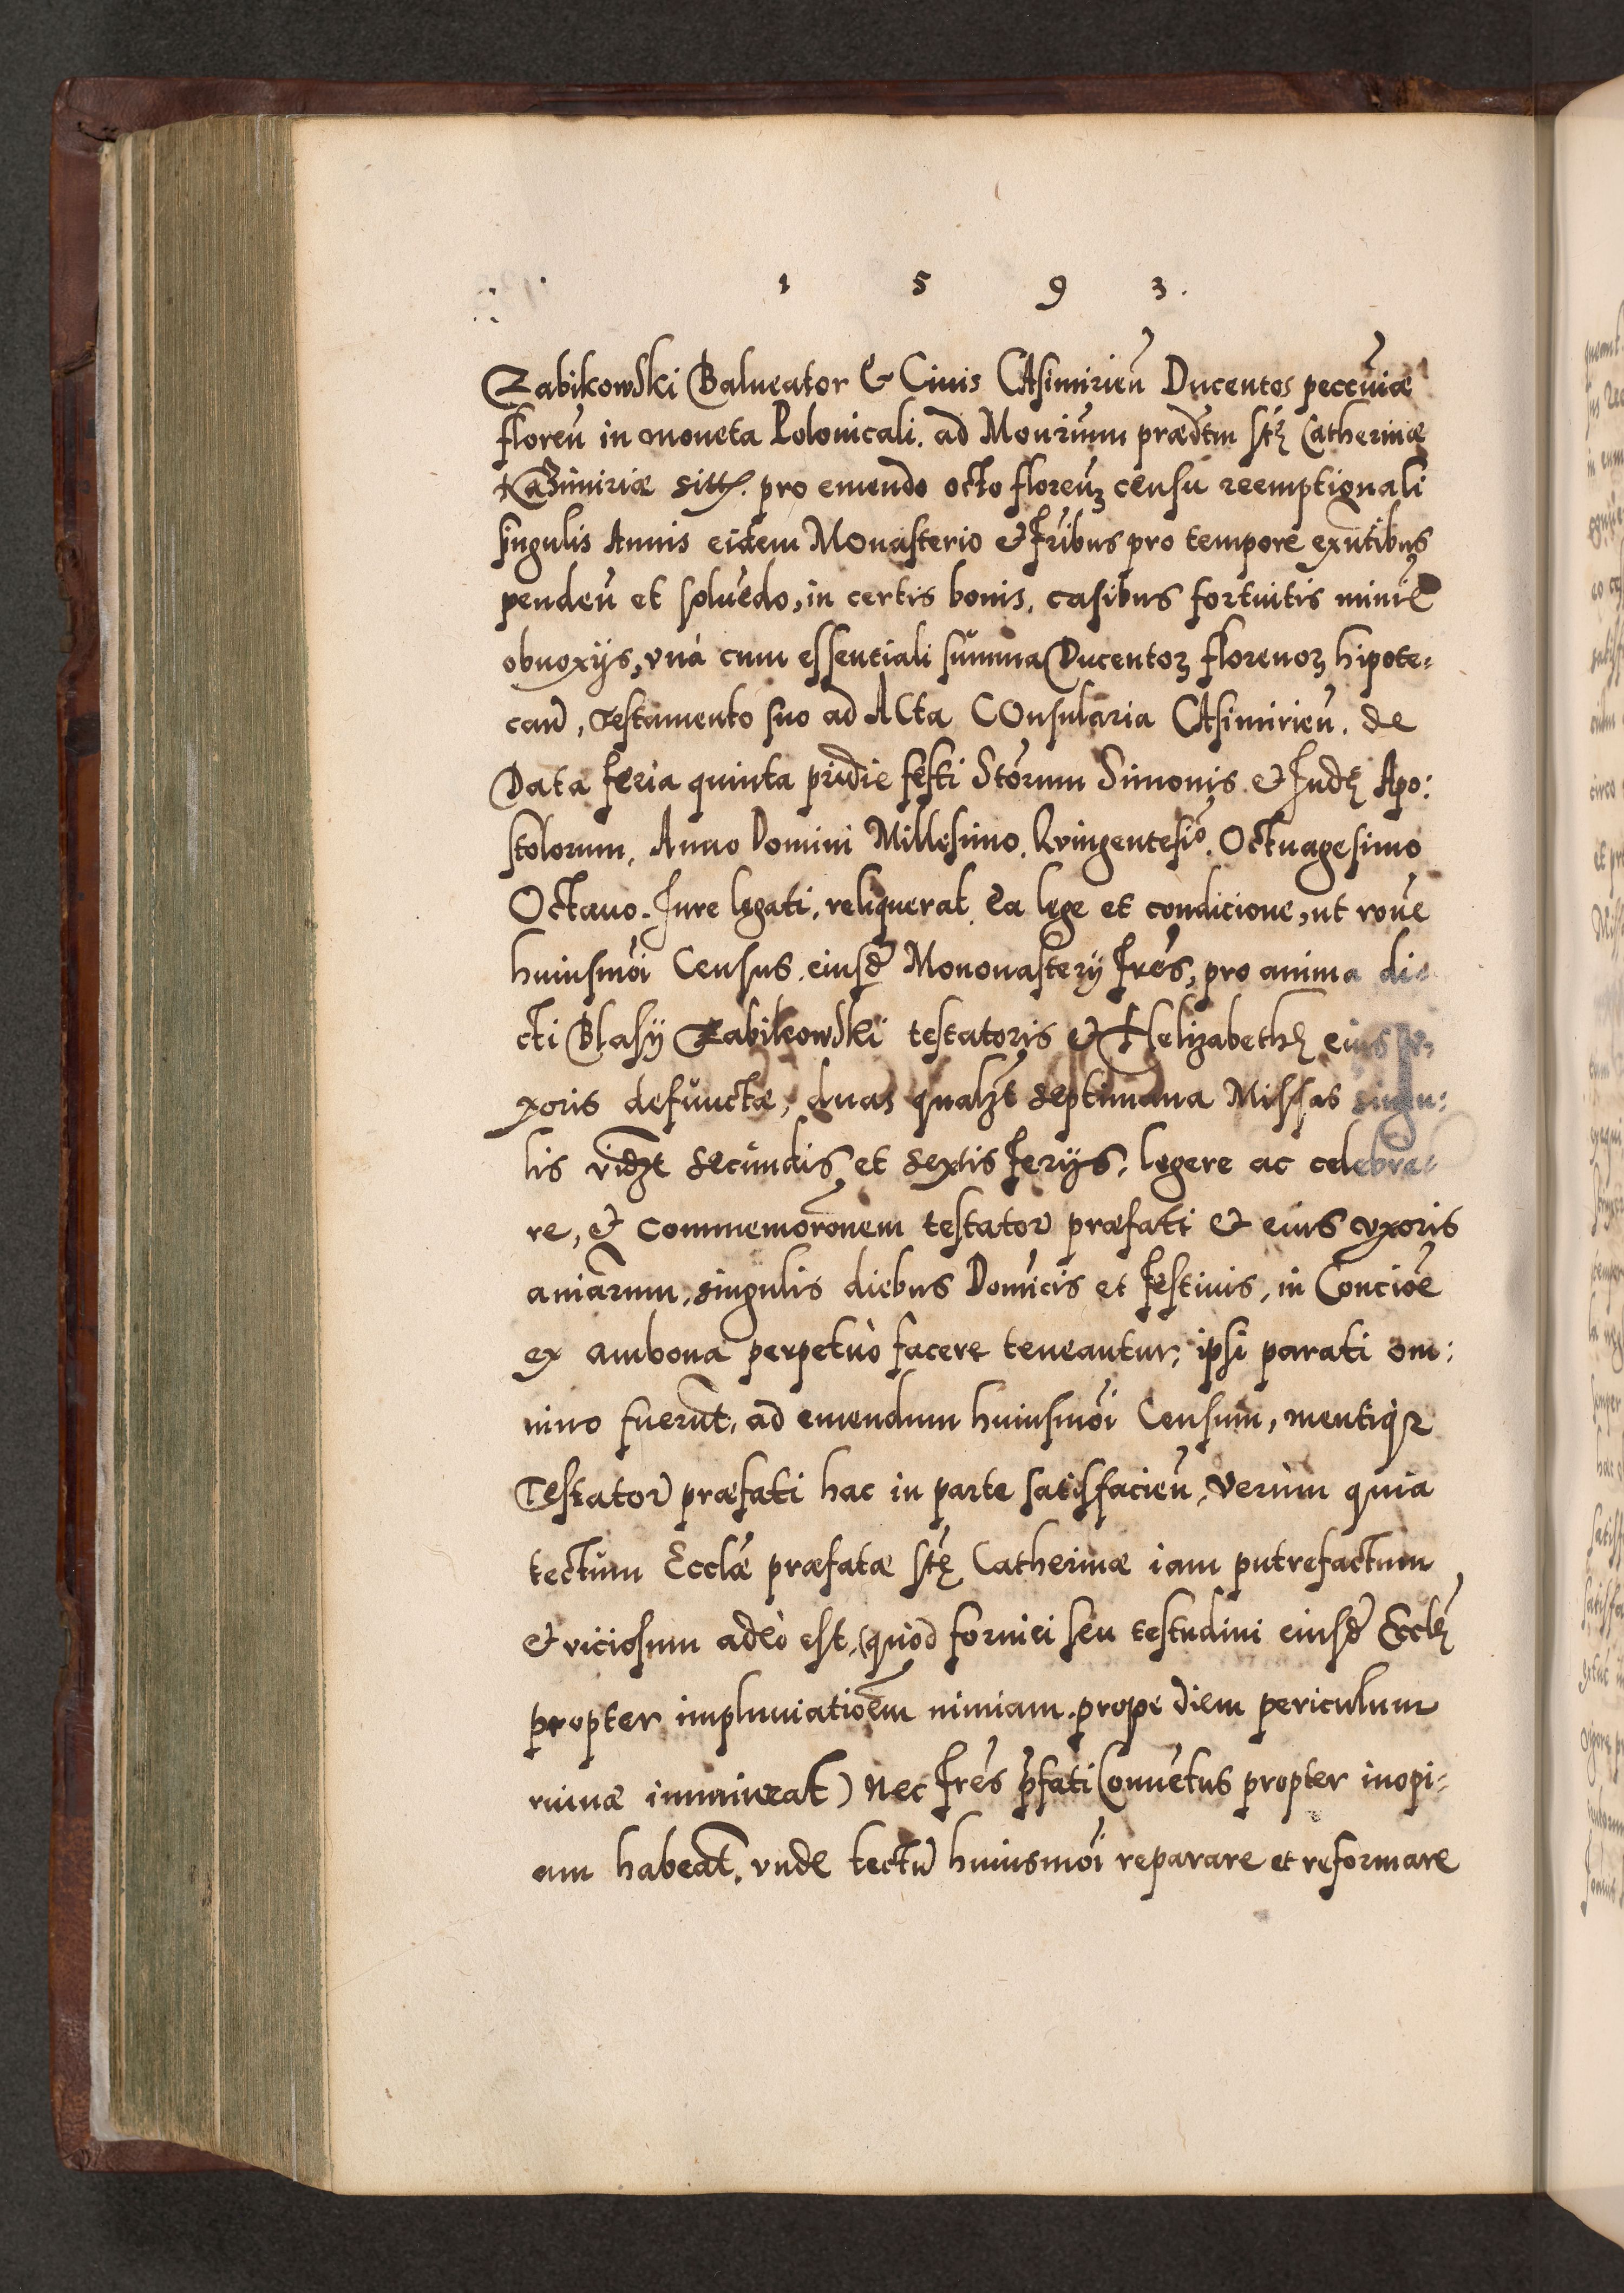 1 5 9 3.
Zabikowski Balneator & Ciuis CAsimirień Ducentos peccūiæ
floreń in moneta Polonicali. ad Monrium prædtm sťę Catherinæ
Kazimiriæ sitt. pro emendo octo floreńȝ censu reemptionali
singulis Annis eidem MOnasterio et fribus pro tempore exñtibus
pendeń et soluēdo, in certis bonis, casibus fortuitis minie
obnoxijs, vnà cum essentiali sum̄ma Ducentoȝ florenoȝ hipote-
cań, Testamento suo ad ACta COnsularia CAsimirień. de
Data feria quinta pridie festi Stōrum Simonis et Judę Apo:
stolorum, Anno Domini Millesimo. Qvingentesiō. Octuagesimo
Octauo. Jure legati, reliquerat ea lege et condicione, ut roñe
huiusmōi Census eiusď Mononastery frēs, pro anima di-
cti Blasij Zabikowski testatoris et Helizabethę eius v-
xoris defunctæ, duas qualȝt septimana Missas singu:
lis vidȝt secundis et sextis ferijs, legere ac celebra-
re, et commemorōnem testatoř præfati et eius vxoris
aniārum, singulis diebus Domīcis et festiuis, in Conciōe
ex ambona perpetuò facere teneantur, ipsi parati om:
nino fuerūt, ad emendum huiusmōi Censum, mentiqȝ
Testatoř præfati hac in parte satisfacień, verùm quia
tectum Ecclāe præfatæ sťę Catherinæ iam putrefactum
et viciosum adeò est, (quòd fornici seu testudini eiusď Ecclę
propter impluuiatiōem nimiam. prope diem periculum
ruinæ immineat) Nec frēs p̄fati Conuētus propter inopi-
am habeāt, vnde tectū huiusmōi reparare et reformare